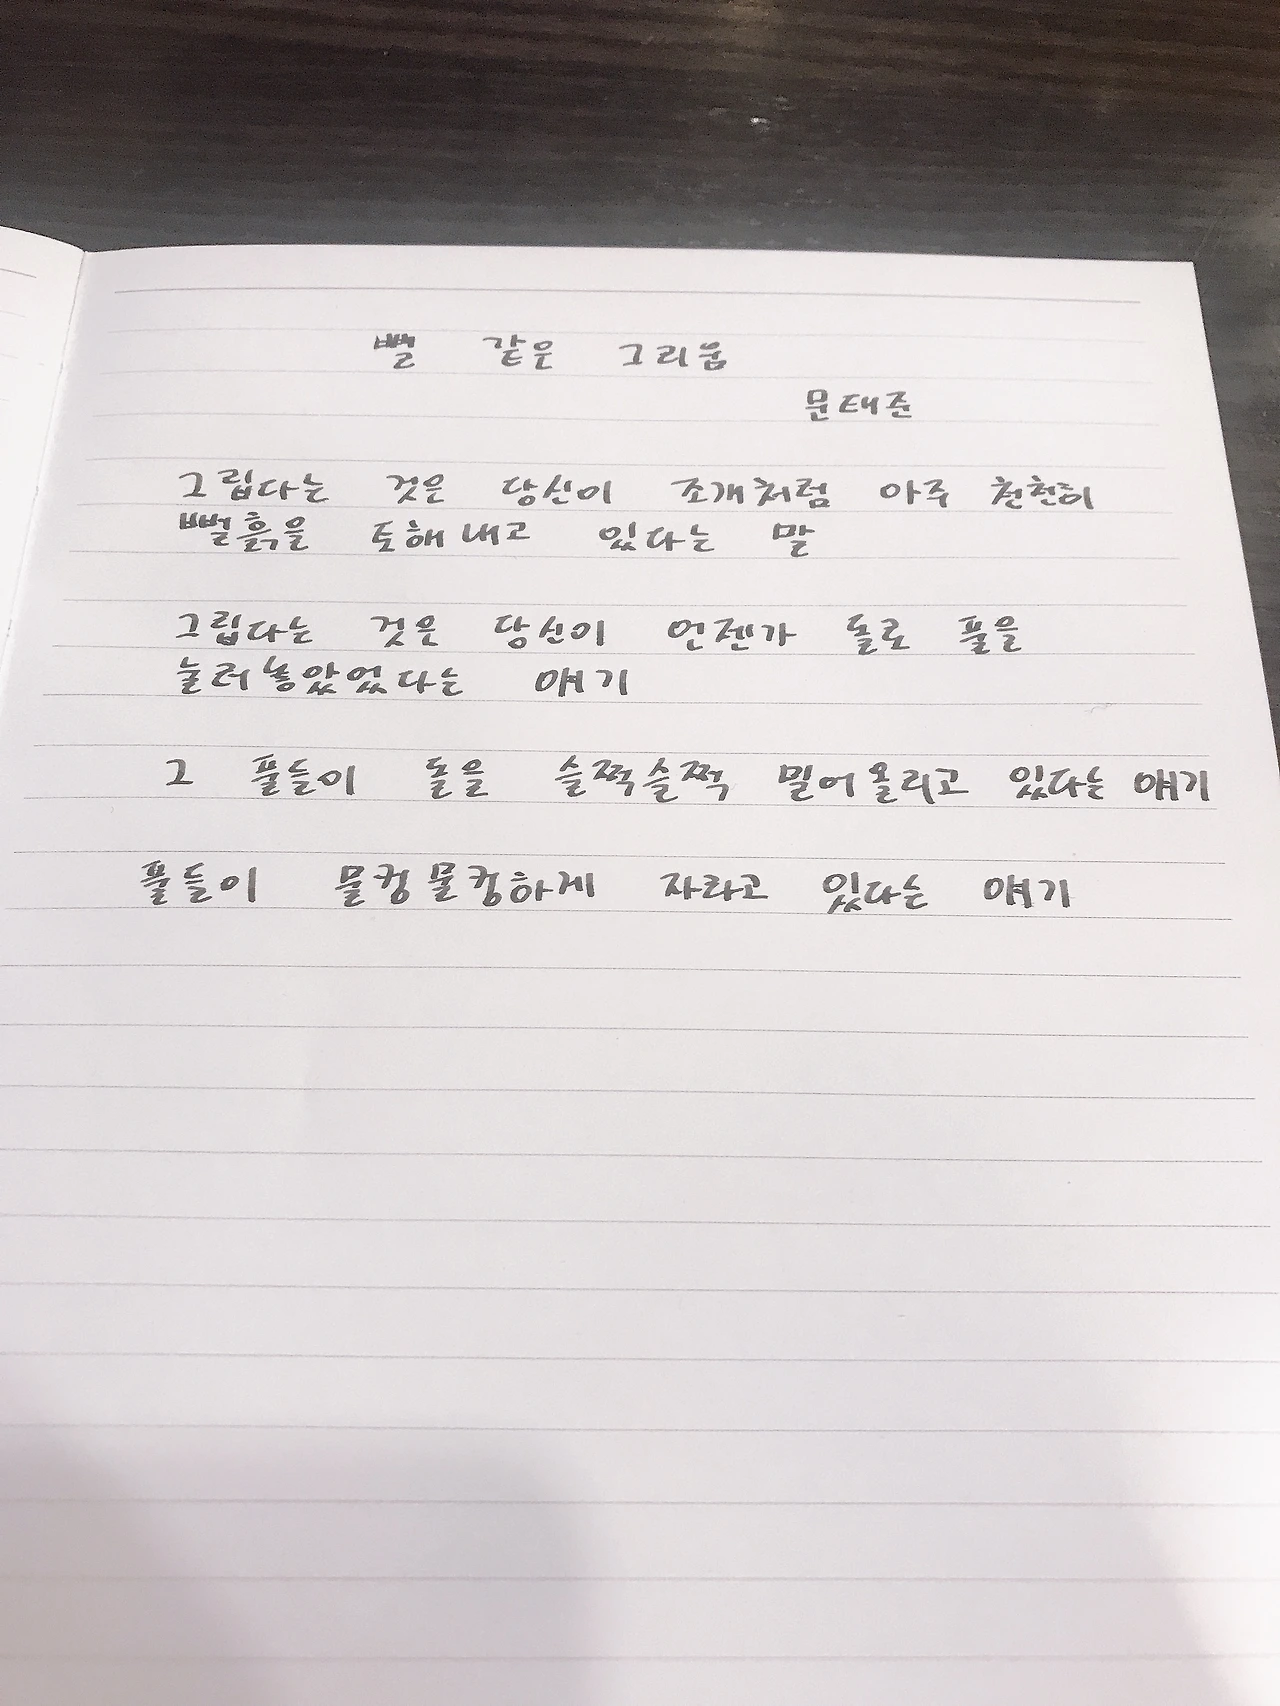 뻘 같은 그리움
문태준
그립다는 것은 당신이 조개처럼 아주 천천히
뻘흙을 토해내고 있다는 말
그립다는 것은 당신이 언젠가 돌로 풀을
눌러놓았었다는 얘기
그 풀들이 돌을 슬쩍슬쩍 밀어올리고 있다는 얘기
풀들이 물컹물컹하게 자라고 있다는 얘기